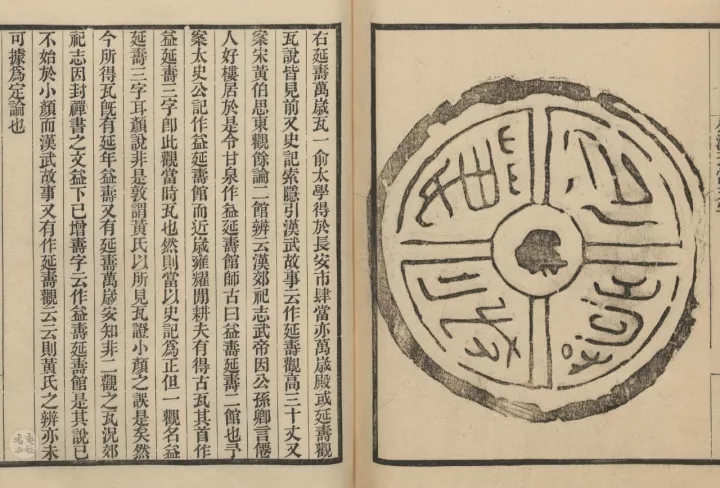 右延壽萬歲瓦一俞太學得於長安市肆當亦萬歲殿或延壽觀
瓦說皆見前又史記索隱引漢武故事云作延壽觀高三十丈又
案宋黃伯思東觀餘論二館辨云漢郊祀志武帝因公孫卿言僊
人好樓居於是令甘泉作益延壽館師古曰益壽延壽二館也予
案太史公記作益延壽館而近歲雍耀閒耕夫有得古瓦其首作
益延壽三字卽此觀當時瓦也然則當以史記為正但一觀名益
延壽三字耳顏說非是敦謂黃氏以所見瓦證小顏之誤是矣然
今所得瓦旣有延年益壽又有延壽萬歲安知非二觀之瓦況郊
祀志因封禪書之文益下已增壽字云作益壽延壽館是其說已
不始於小顏而漢武故事又有作延壽觀云云則黃氏之辨亦未
可據爲定論也